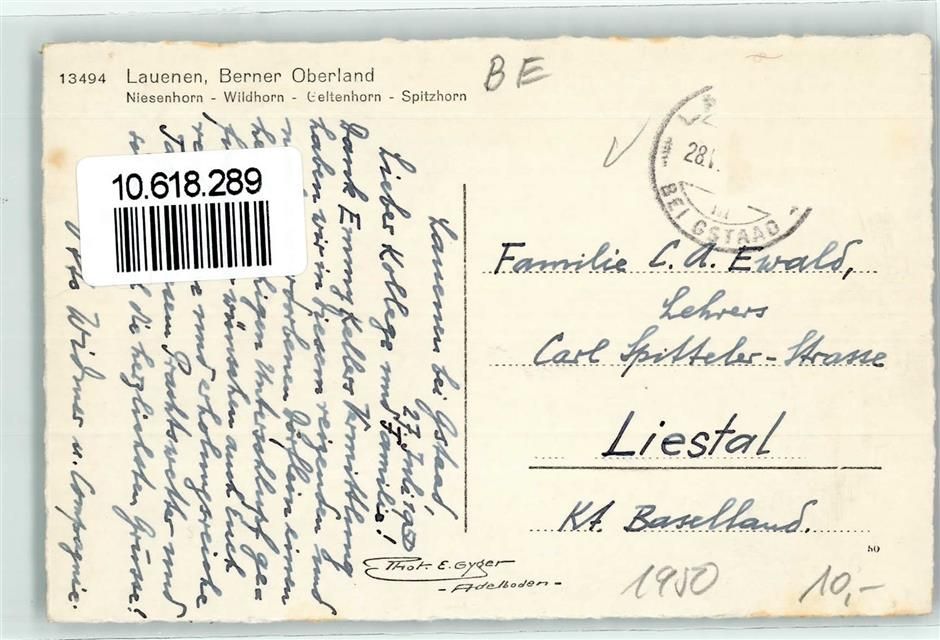 13494 Lauenen, Berner Oberland
Niesenhorn - Wildhorn - Geltenhorn - Spitzhorn
BE
10.618.289
28.V
BEI GSTAAD
Lauenen bei Gstaad,
27. Juli 1950
Lieber Kollege und Familie!
Dank Emmy Kellers Vermittlung
haben wir in diesem reizenden und
dorbenen Dörflein einen
ligen Unterschlupf ge=
wünschen auch Euch
und erholungsreiche
Prachtswetter und
die herzlichsten Grüsse!
Otto Widmer u. Compagnie.
Familie C. A. Ewald,
Lehrers
Carl Spitteler-Strasse
Liestal
Kt. Baselland.
Phot. E. Gyger
- Adelboden -
50
1950
10,-